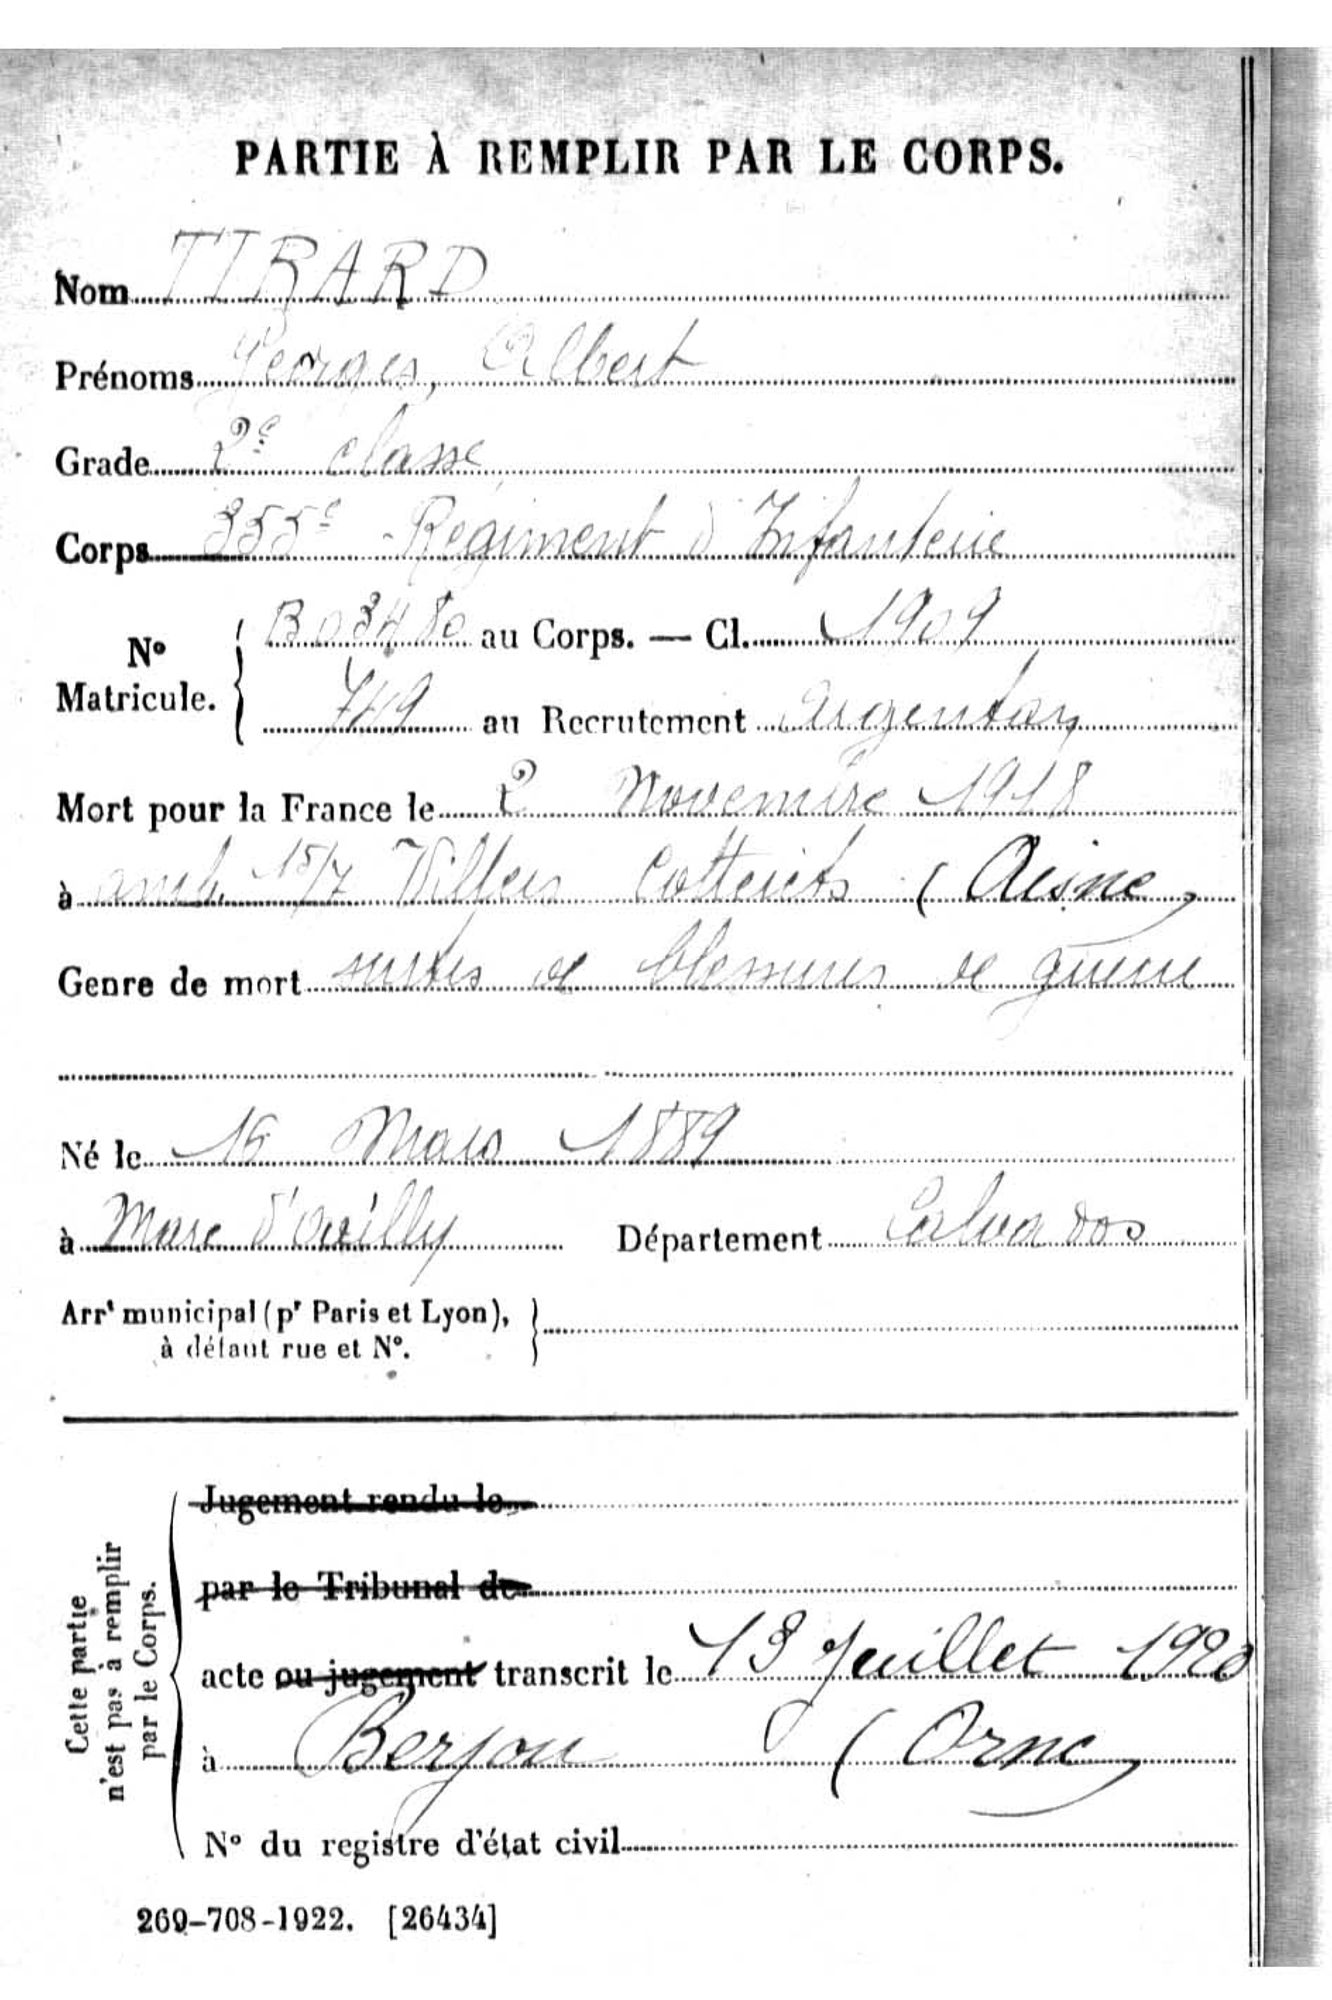 PARTIE À REMPLIR PAR LE CORPS.
Nom TIRARD
Prénoms Georges, Albert
Grade 2e classe
Corps 355e Régiment d'Infanterie
No Matricule. { B03480 au Corps. — Cl. 1909
749 au Recrutement Argentan
Mort pour la France le 2 Novembre 1918
à amb. 15/7 Villers Cotterets (Aisne)
Genre de mort suites de blessures de guerre
Né le 16 Mars 1889
à Marc d'Ouilly Département Calvados
Arrt municipal (pr Paris et Lyon), }
à défaut rue et No.
Cette partie
n'est pas à remplir
par le Corps.
Jugement rendu le
par le Tribunal de
acte ou jugement transcrit le 13 Juillet 1920
à Berjou (Orne)
No du registre d'état civil
269-708-1922. [26434]